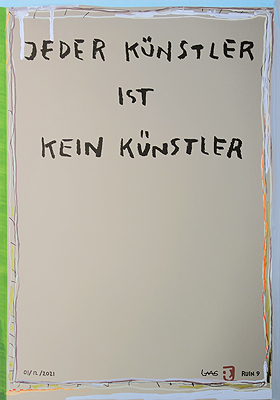 JEDER KÜNSTLER
IST
KEIN KÜNSTLER
01/12/2021 RUIN 9